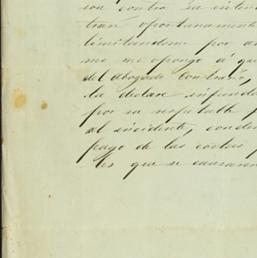 son contra su inten
tran oportunament
limitandome por a
me me opongo á qu
del abogado contrario,
la declare infunda
por su respetable
el incidente, conden
pago de las costas
les que se causaron